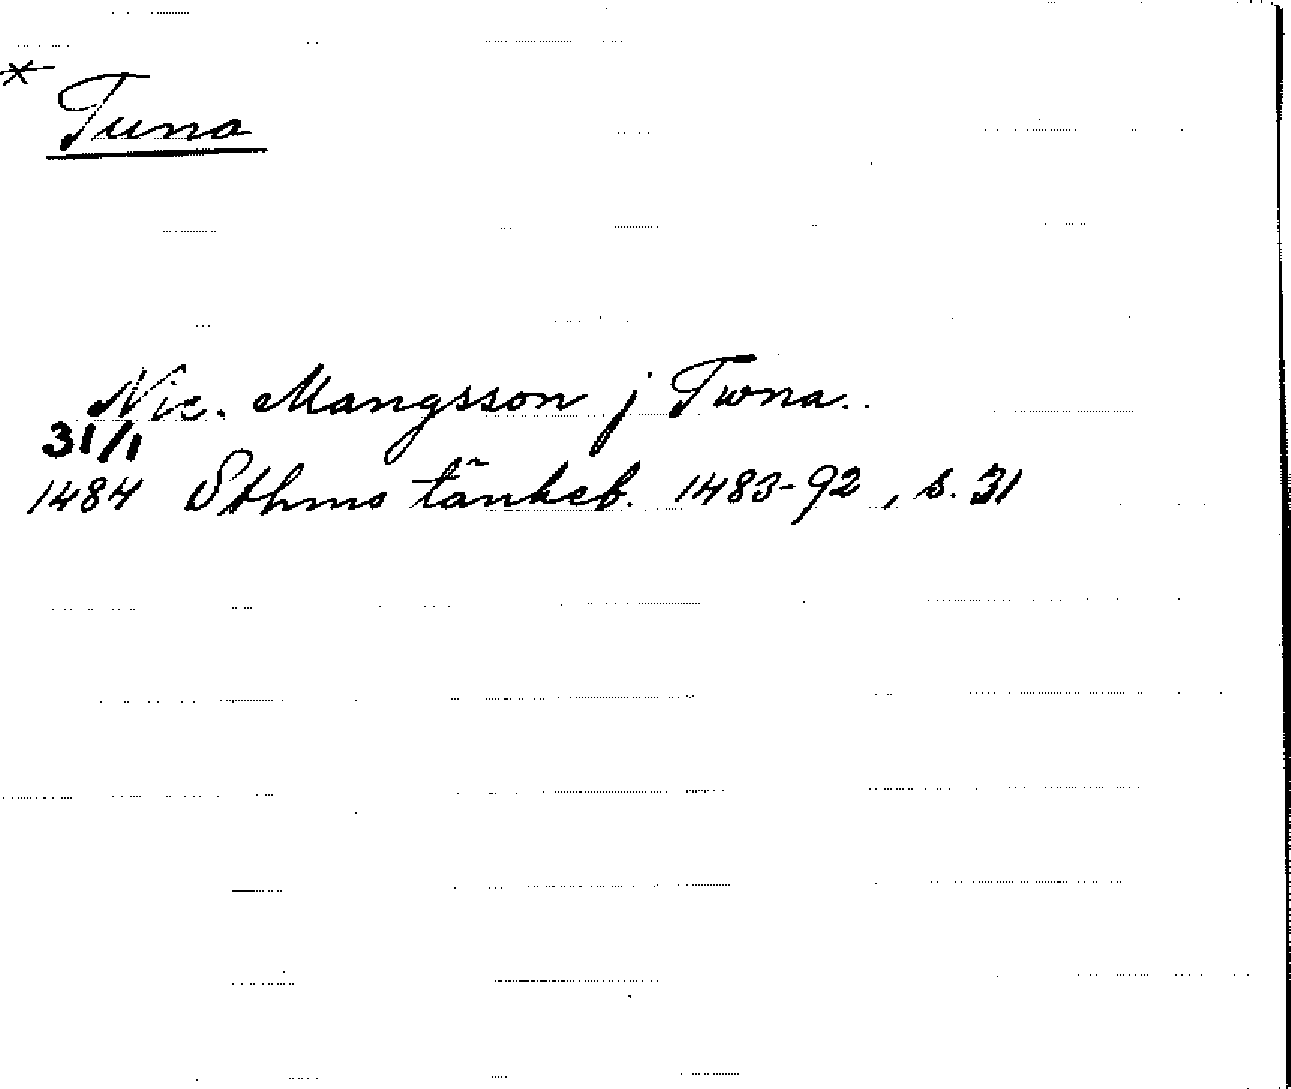 * Tuna
Nic. Mangsson j Twna.
31/1
1484 Sthms tänkeb. 1483-92, s. 31